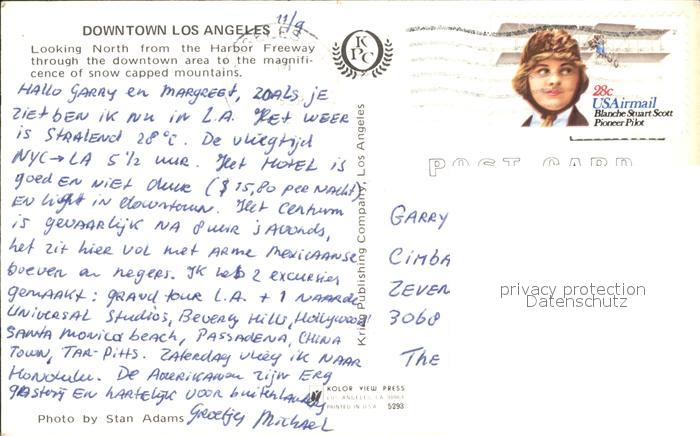 11/9
DOWNTOWN LOS ANGELES
Looking North from the Harbor Freeway
through the downtown area to the magnifi-
cence of snow capped mountains.
HALLO GARRY en MARGREET, ZOALS je
ZIET BEN ik NU in L.A. HET WEER
is STRALEND 28°C. De vliegtijd
NYC → LA 5 1/2 uur. Het HOTEL is
goed EN NIET duur ($ 15,80 per nacht)
EN ligt in downtown. Het centrum
is gevaarlijk NA 8 uur 's Avonds,
het zit hier vol met arme Mexicaanse
boeven en negers. Ik heb 2 excursies
gemaakt: grand tour L.A. + 1 naar de
Universal Studios, Beverly Hills, Hollywood
Santa Monica beach, Passadena, China
Town, Tar-Pitts. Zaterdag vlieg ik naar
Honolulu. De Amerikanen zijn Erg
gastvrij EN hartelijk voor buitenlanders
Groetjes Michael
Photo by Stan Adams
KPC
Kring Publishing Company, Los Angeles
KOLOR VIEW PRESS
LOS ANGELES, CA
PRINTED IN U.S.A. 5293
28c
USAirmail
Blanche Stuart Scott
Pioneer Pilot
POST CARD
GARRY
CIMBA
ZEVEN
3068
The
privacy protection
Datenschutz